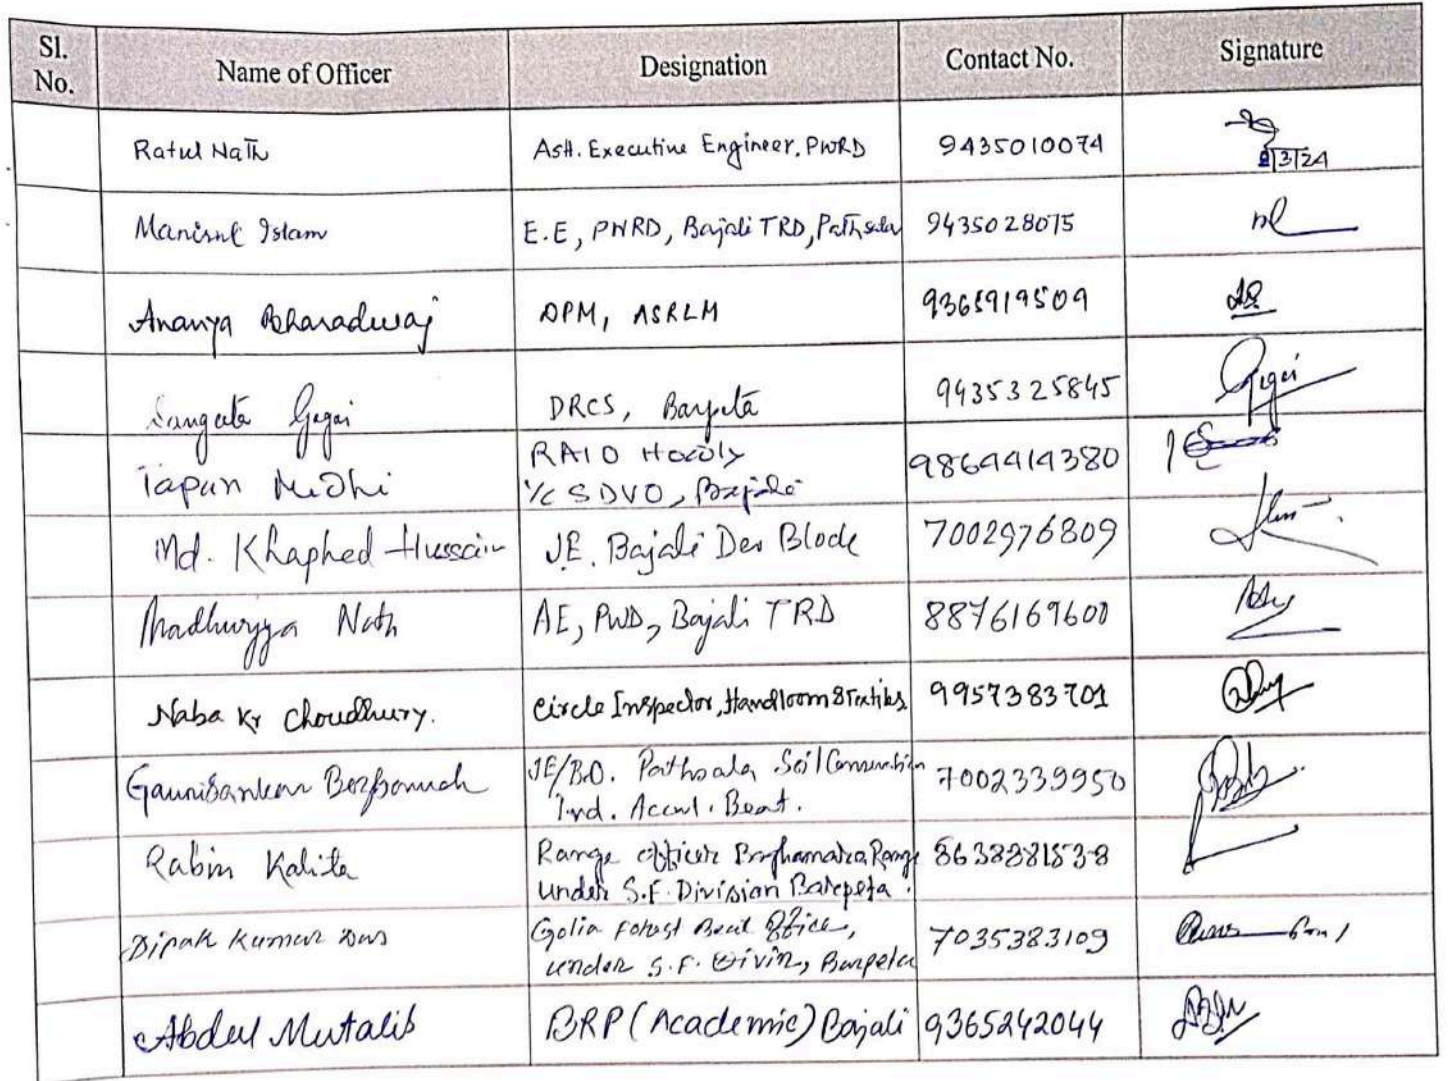 Sl. No. Name of Officer Designation Contact No. Signature
Ratul Nath Astt. Executive Engineer, PWRD 9435010074
/3/24
Manirul Islam E.E, PWRD, Bajali TRD, Pathsala 9435028075
Ananya Bharadwaj DPM, ASRLM 9365919509
Sangeeta Gogoi DRCS, Barpeta 9435325845 Gogoi
Tapan Medhi RAIO Howly 9864414380
I/c SDVO, Bajali
Md. Khaphed Hussain JE. Bajali Dev Block 7002976809
Madhurjya Nath AE, PWD, Bajali TRD 8876169600
Naba Kr Choudhury. Circle Inspector, Handloom & Textiles 9957383701
Gaurisankar Borbaruah JE/BO. Pathsala Soil Conservation 7002339950
Ind. Beat.
Rabin Kalita Range officer Range
under S.F. Division Barpeta.
Dipak Kumar Das Golia Forest Beat Office, 7035383109
under S.F. Divin, Barpeta
Abdul Mutalib BRP (Academic) Bajali 9365242044